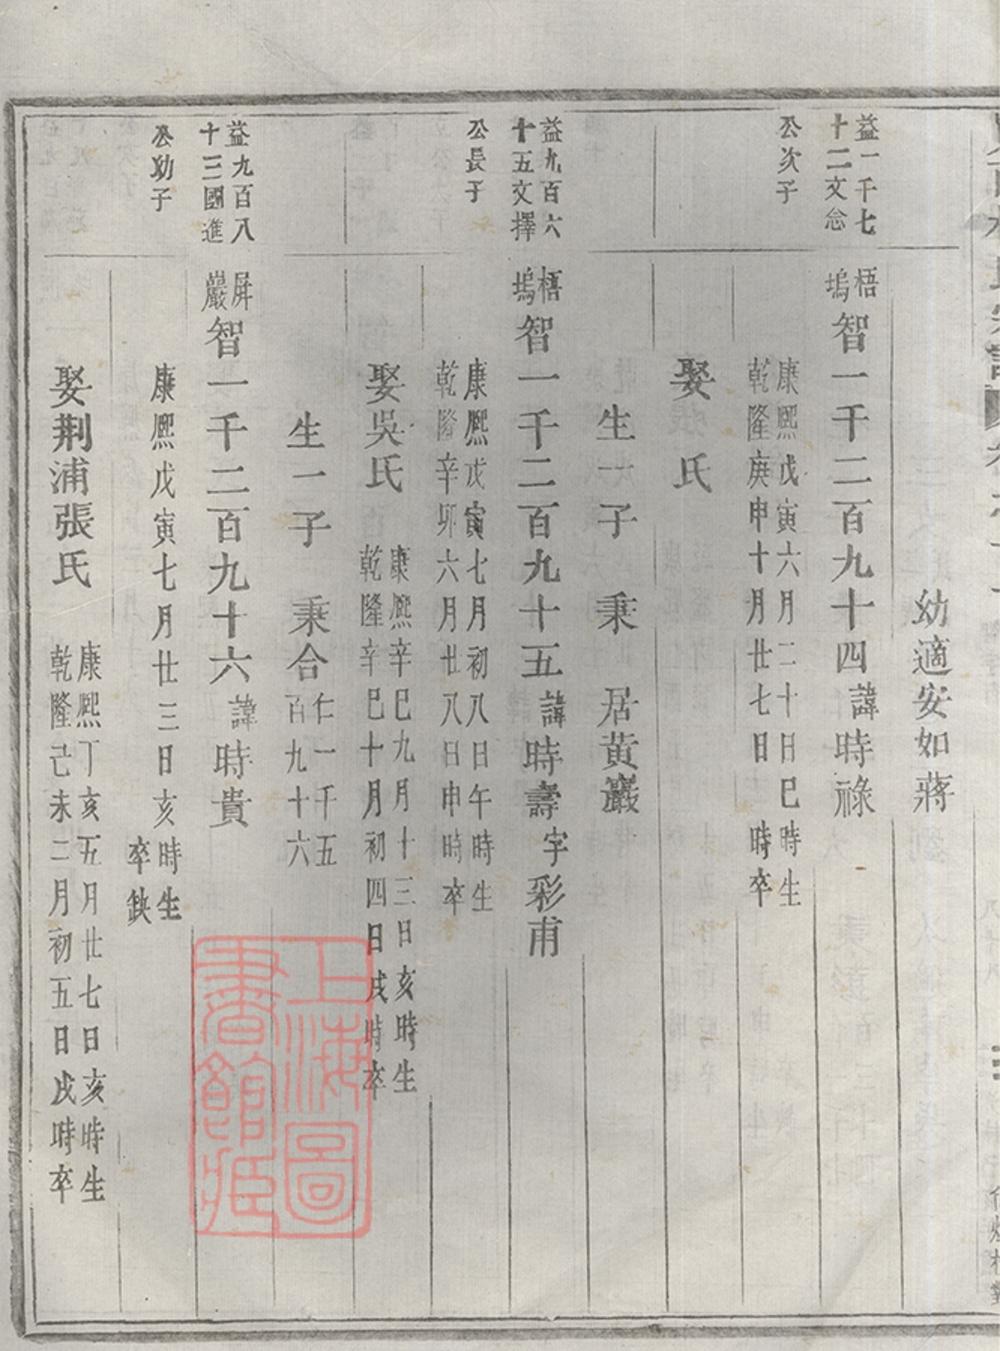 幼適安如蔣
益一千七
十二文念
公次子
梧
塢
智一千二百九十四諱時祿
康熙戊寅六月二十日巳時生
乾隆庚申十月廿七日 時卒
娶 氏
生一子 秉 居黃巖
益九百六
十五文擇
公長子
梧
塢
智一千二百九十五諱時壽字彩甫
康熙戊寅七月初八日午時生
乾隆辛卯六月廿八日申時卒
娶吳氏
康熙辛巳九月十三日亥時生
乾隆辛巳十月初四日戌時卒
生一子 秉合
仁一千五
百九十六
益九百八
十三國進
公幼子
屏
巖
智一千二百九十六諱時貴
康熙戊寅七月廿三日亥時生
卒缺
娶荆浦張氏
康熙丁亥五月廿七日亥時生
乾隆己未二月初五日戌時卒
上海圖
書館藏